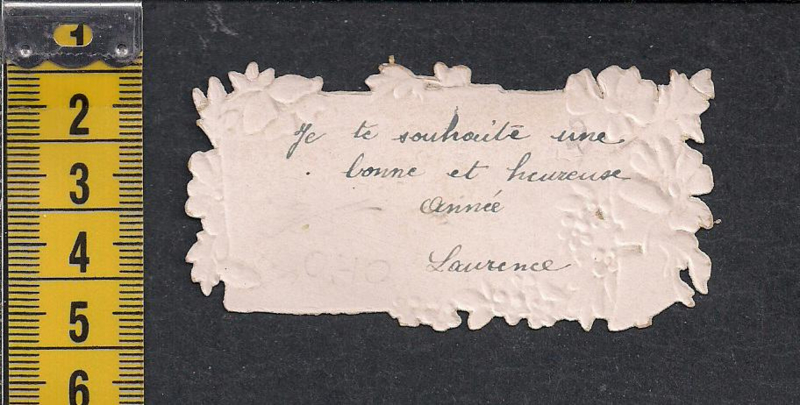 1
2
3
4
5
6
Je te souhaite une
bonne et heureuse
Année
Laurence